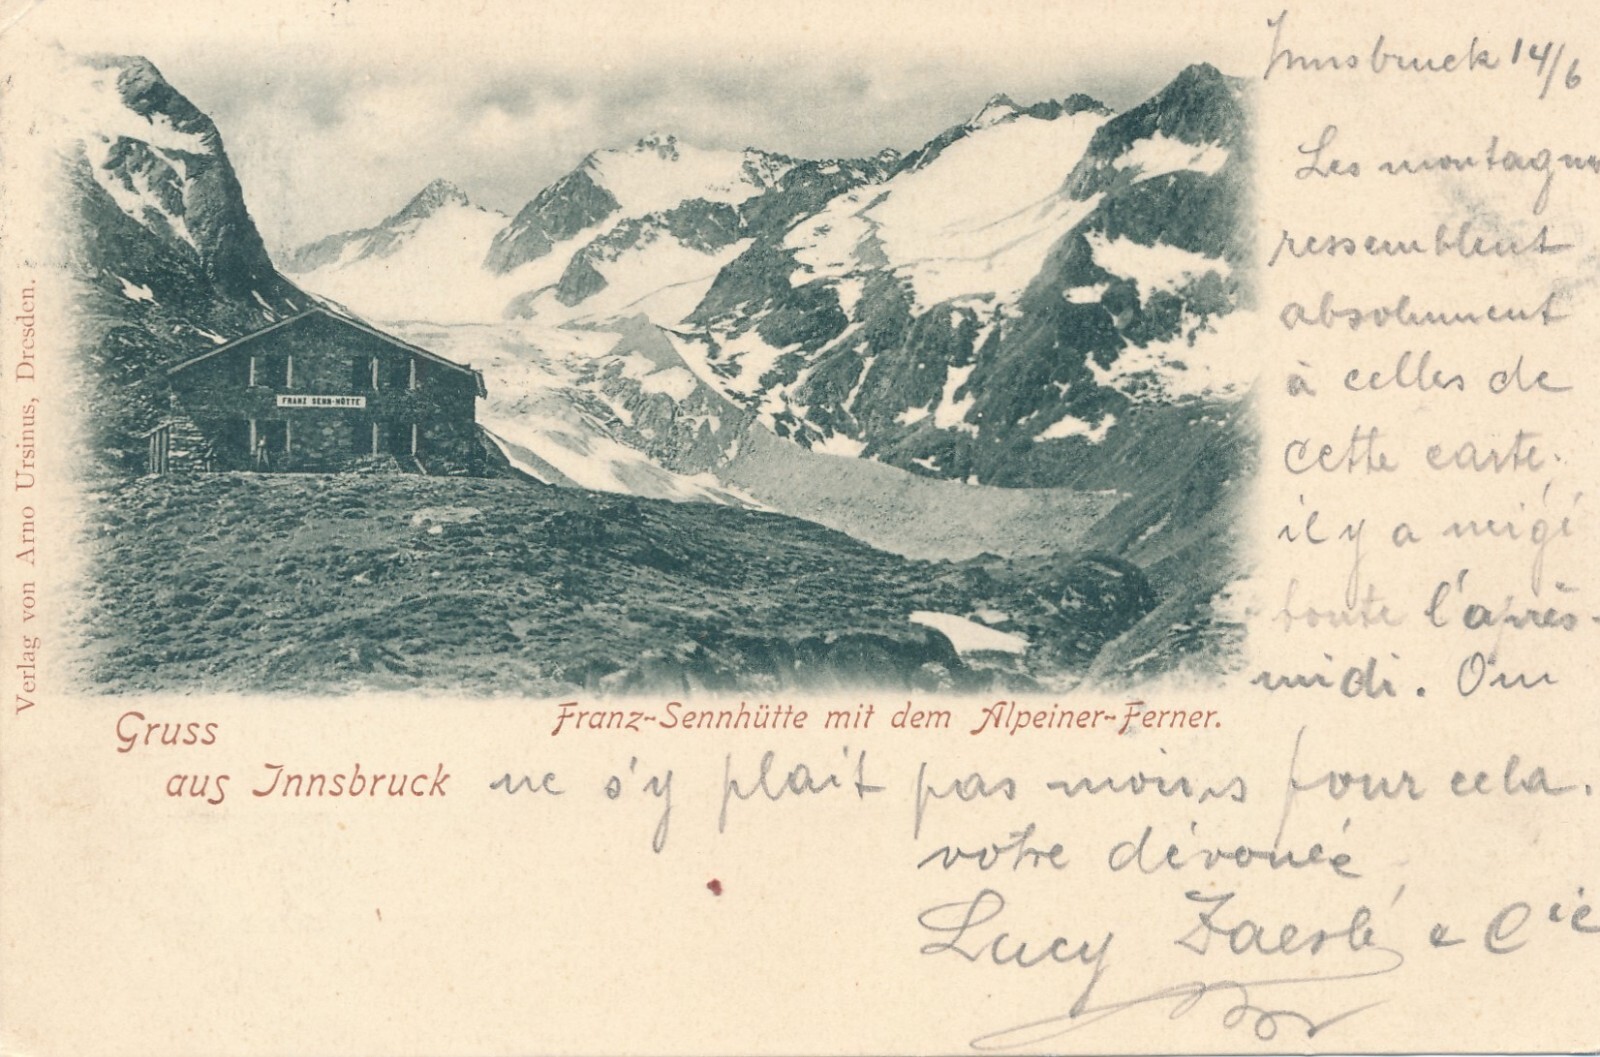 Innsbruck 14/6
Les montagnes
ressemblent
absolument
à celles de
cette carte.
il y a neigé
toute l'après-
midi. On
ne s'y plait pas moins pour cela.
votre dévouée
Lucy & Cie
FRANZ SENN-HÜTTE
Franz-Sennhütte mit dem Alpeiner-Ferner.
Gruss
aus Innsbruck
Verlag von Arno Ursinus, Dresden.